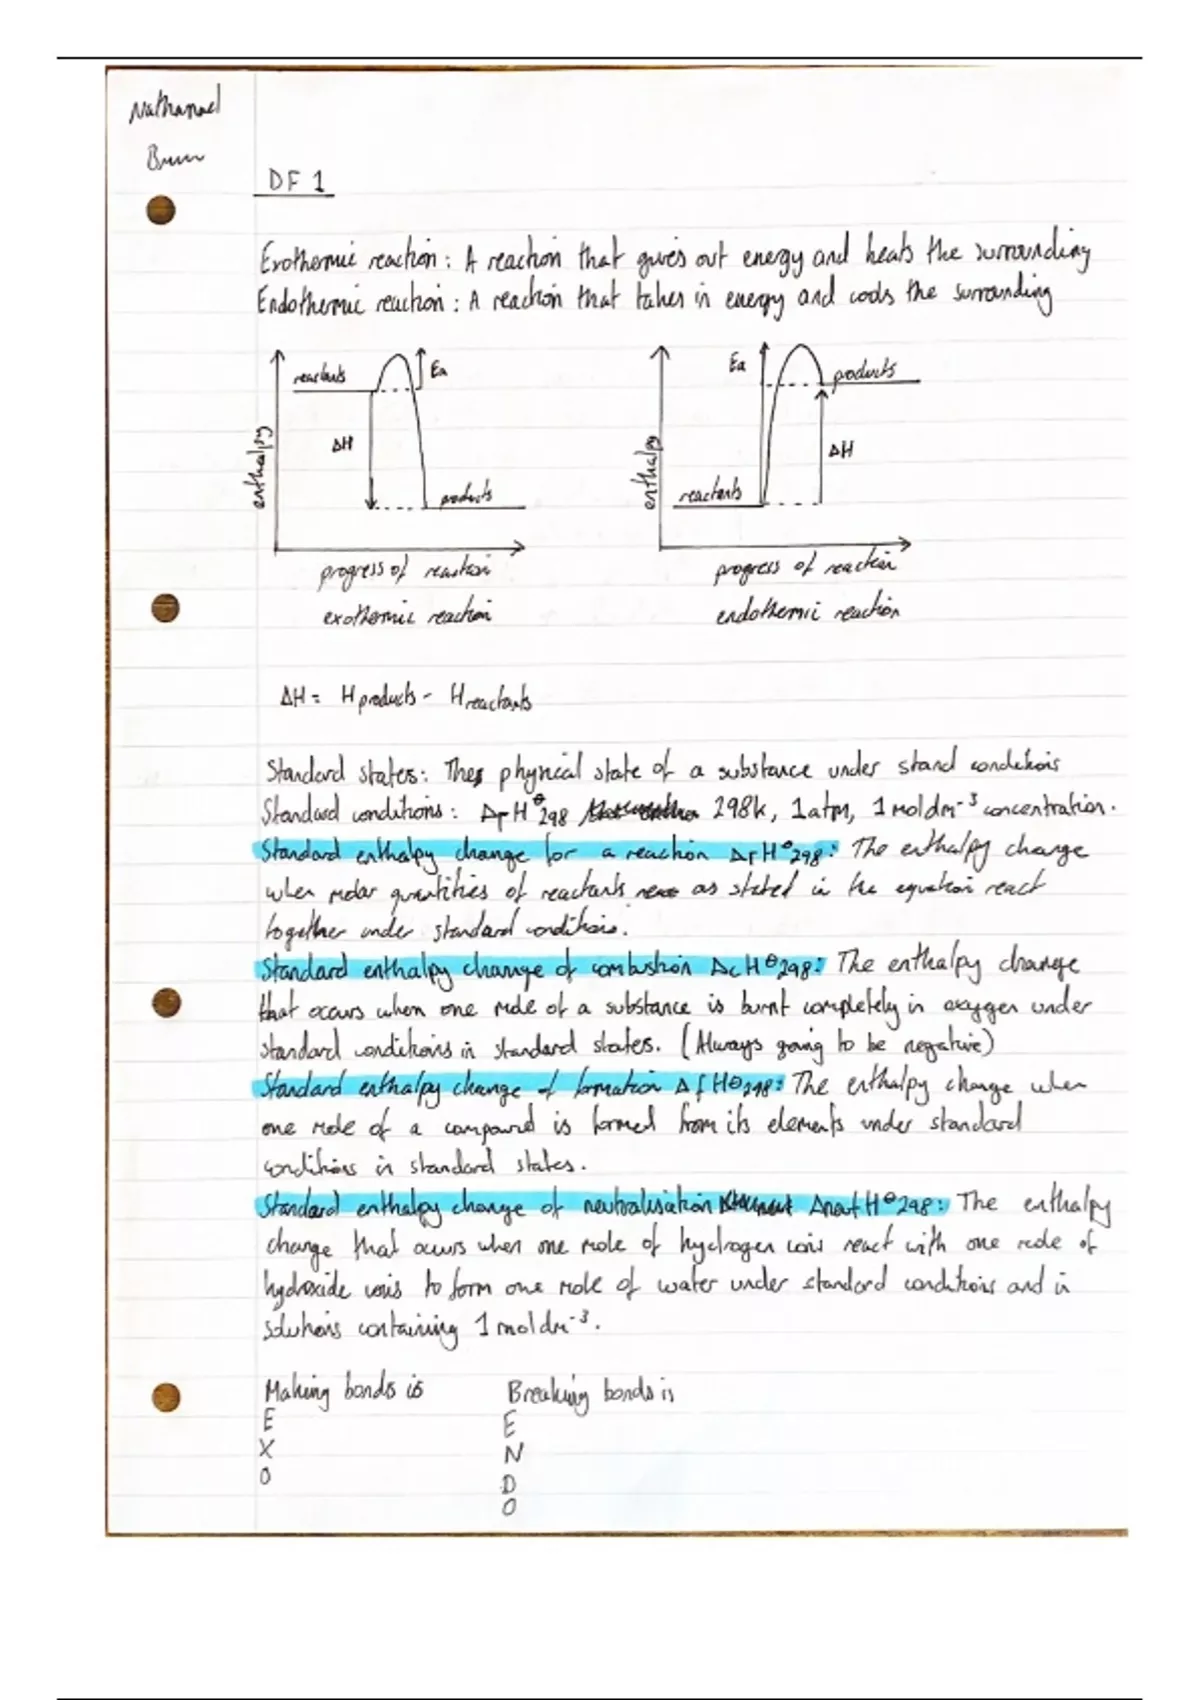 Nathanael
DF 1
Exothermic reaction : A reaction that gives out energy and heats the surrounding
Endothermic reaction : A reaction that takes in energy and cools the surrounding
reactants
Ea
ΔH
products
enthalpy
progress of reaction
exothermic reaction
Ea
products
ΔH
reactants
enthalpy
progress of reaction
endothermic reaction
ΔH = Hproducts - Hreactants
Standard states: The physical state of a substance under stand conditions
Standard conditions : ΔrH⦵298 298k, 1atm, 1 moldm-³ concentration.
Standard enthalpy change for a reaction ΔrH⦵298: The enthalpy change
when molar quantities of reactants as stated in the equation react
together under standard conditions.
Standard enthalpy change of combustion ΔcH⦵298: The enthalpy change
that occurs when one mole of a substance is burnt completely in oxygen under
standard conditions in standard states. (Always going to be negative)
Standard enthalpy change of formation ΔfH⦵298: The enthalpy change when
one mole of a compound is formed from its elements under standard
conditions in standard states.
Standard enthalpy change of neutralisation ΔneutH⦵298: The enthalpy
change that occurs when one mole of hydrogen ions react with one mole of
hydroxide ions to form one mole of water under standard conditions and in
solutions containing 1 moldm-³.
Making bonds is Breaking bonds is
E E
X N
O D
O